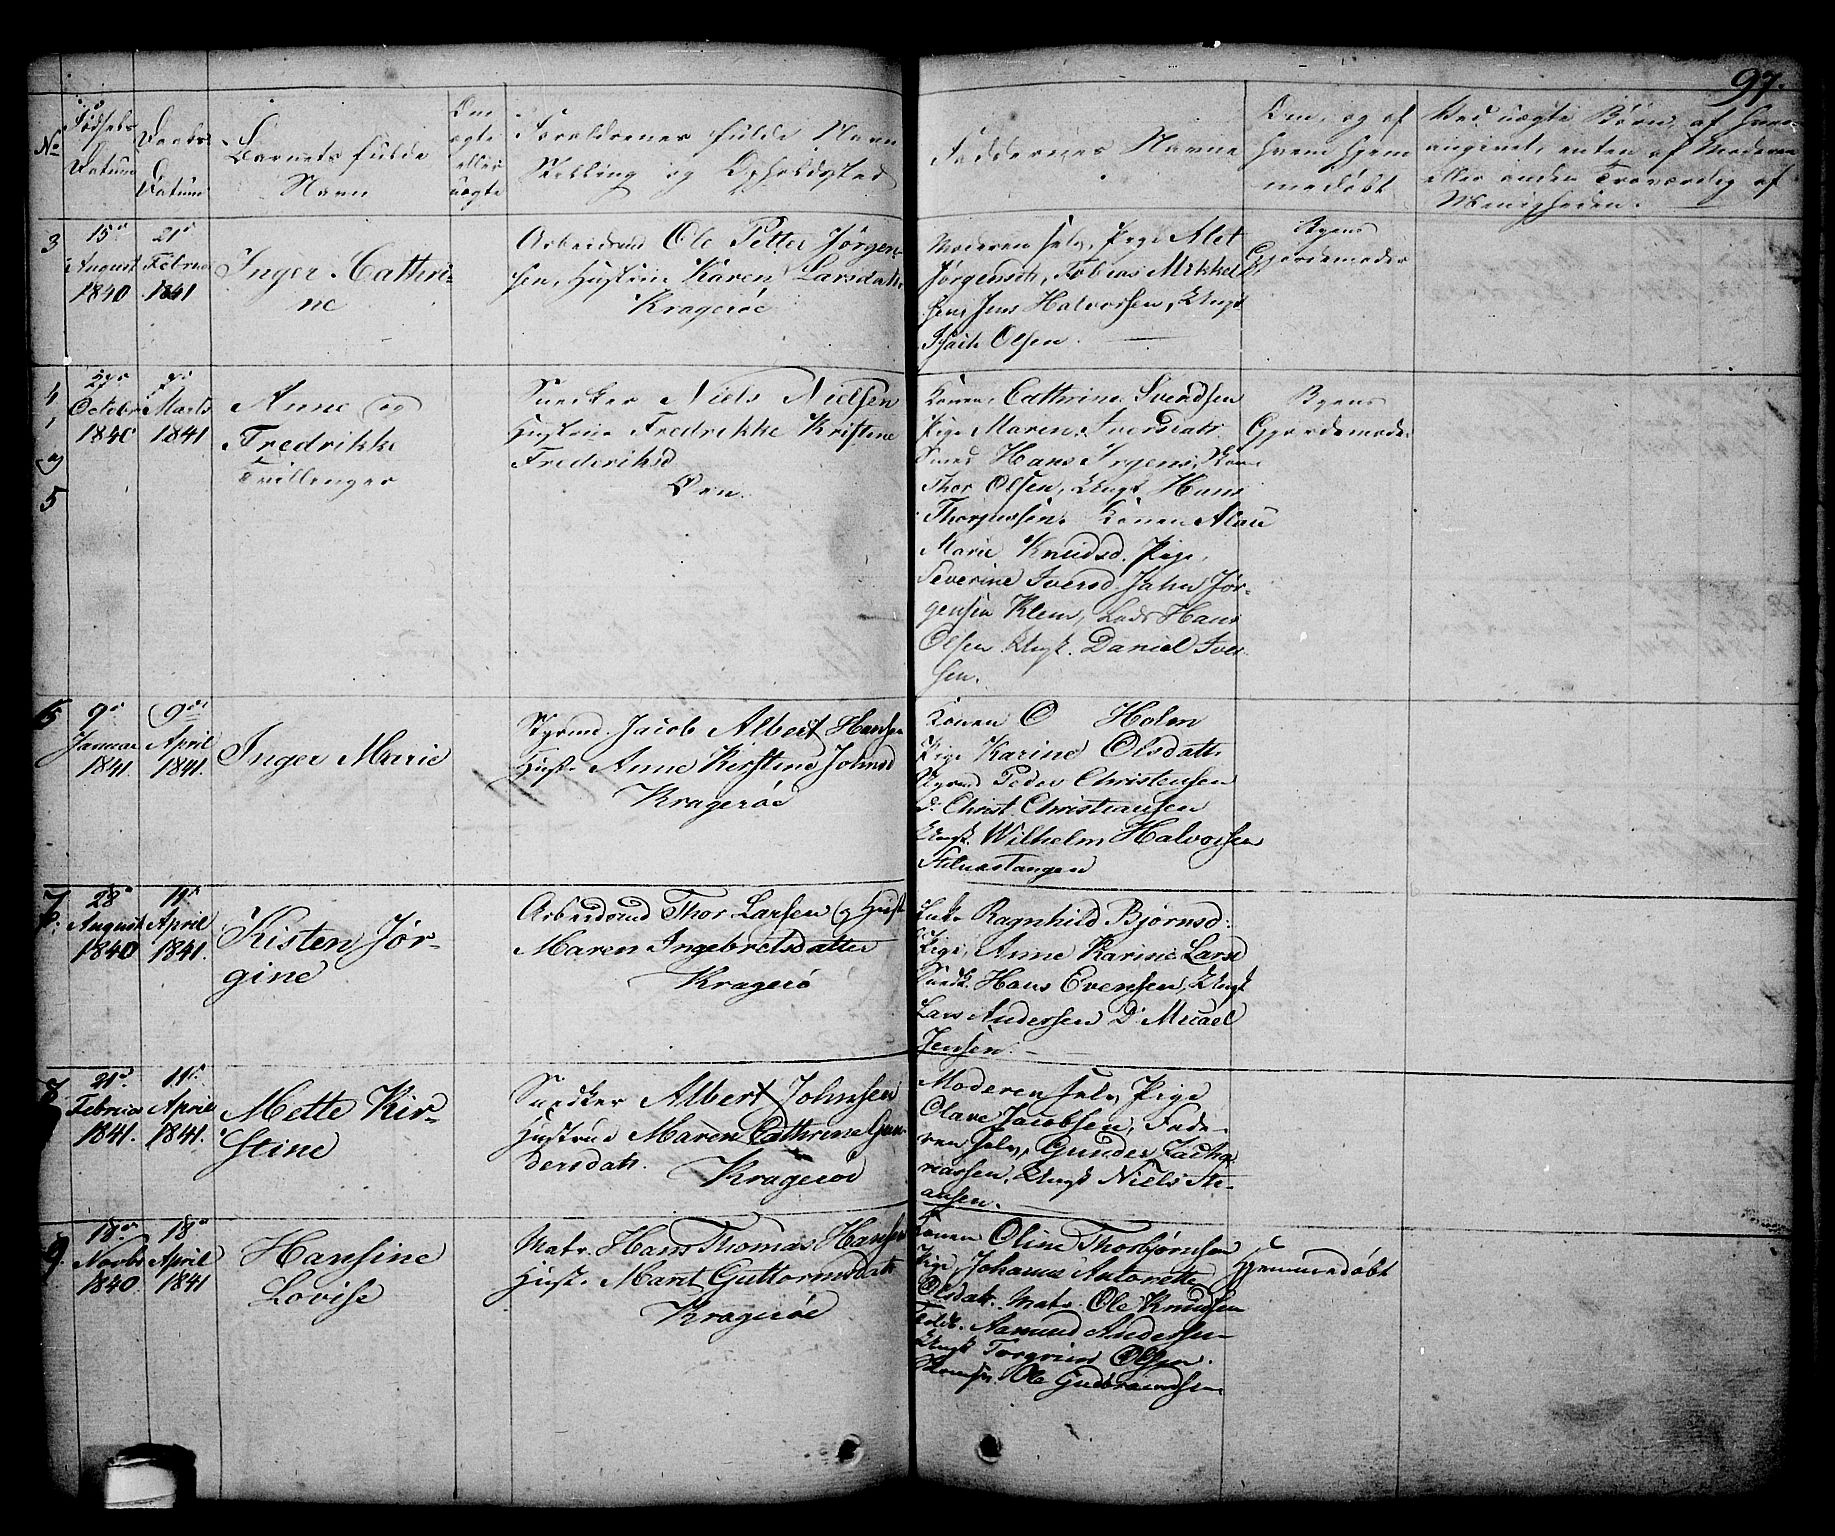 97.
No
Fødsels
Datum
Daabs
Datum
Barnets fulde
Navn
Om
ægte
eller
uægte
Forældrenes fulde Navn
Stilling og Opholdsted
Faddernes Navne
Om, og af
hvem hjem
medøbt
Ved uægte Børn, af hvem
angivet, enten af Moderen
eller anden Troværdig af
Menigheden.
3
15de
August
1840
21de
Februar
1841
Inger Cathri-
ne
Arbeidsmd Ole Petter Jørgen-
sen, Hustrue Karen Larsdatt.
Kragerøe
Moderen selv, Pige Alet
Jørgensdt, Tobias Mikkel
sen, Jens Halvorsen, Ungk
Isach Olsen.
Byens
Gjordemoder
4
og
5
Octobr
1840
7de
Marts
1841
Anne og
Fredrikke
Tvillinger
Snedker Niels Nielsen
Hustrue Fredrikke Kristine
Frederiksd
Øen.
Konen Cathrine Svendsen
Pige Maren Iversdatr
Smed Hans Irgens,
Thor Olsen, Ungk. Hans
Konen
Marie Knudsd. Pige
Severine Iversd. John Jør-
gensen Klem, Lods Hans
Olsen Ungk. Daniel Iver-
sen.
Byens
Gjordemoder
6
9de
Januar
1841.
9de
April
1841.
Inger Marie
Styrmd. Jacob Albert Hansen
Hust. Anne Kirstine Johnsd
Kragerøe
Konen O Holm
Pige Karine Olsdatt.
Styrmd Peder Christensen
Do Christ. Christiansen
Ungk. Wilhelm Halvorsen
7.
28de
August
1840
11te
April
1841.
Kisten Jør-
gine
Arbeidsmd Thor Larsen og Hust
Maren Ingebretsdatter
Kragerø
Enke Ragnhild Bjørnsd:
Pige Anne Karine Larsd
Snedk. Hans Evensen, Ungk
Lars Andersen Do Micael
Jensen.
8
21de
Februar
1841.
11te
April
1841.
Mette Kir-
stine
Snedker Albert Johnsen
Hustrue Maren Cathrine Gun-
dersdatt.
Kragerøe
Moderen selv, Pige
Olave Jacobsen, Fade-
ren selv, Gunder Zacha-
riassen, Ungk Niels
ansen.
9.
18de
Novbr
1840.
18de
April
1841
Hansine
Lovise
Matr. Hans Thomas Hansen
Hust. Marit Guttormsdatt
Kragerøe
Konen Oline Thorbjørnsen
Pige Johanne Antonette
Olsdatt. Matr. Ole Knudsen
Aasmund Andersen
Ungk Torgrim Olsen.
Ole Gudbrandsen
Hjemmedøbt